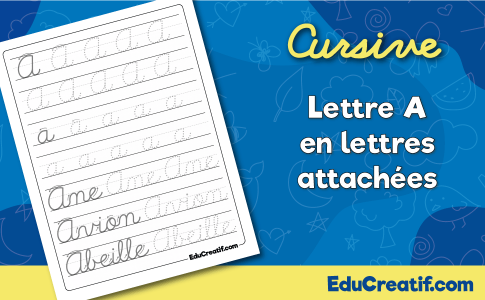 a a a a a
a a a a a
a a a a a
a a a a a
Ame Ame Ame
Avion Avion
Abeille Abeille
EduCreatif.com
Cursive
Lettre A
en lettres
attachées
EduCreatif.com